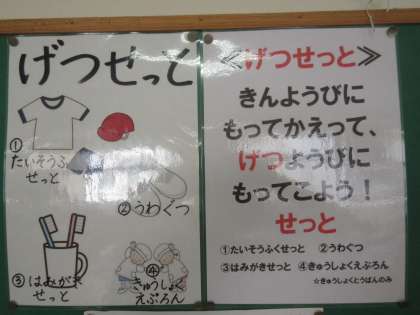 げつせっと
①
たいそうふ
せっと
②うわぐつ
③はみがき
せっと
④
きゅうしょく
えぷろん
≪げつせっと≫
きんようびに
もってかえって、
げつようびに
もってこよう！
せっと
①たいそうふくせっと ②うわぐつ
③はみがきせっと ④きゅうしょくえぷろん
☆きゅうしょくとうばんのみ